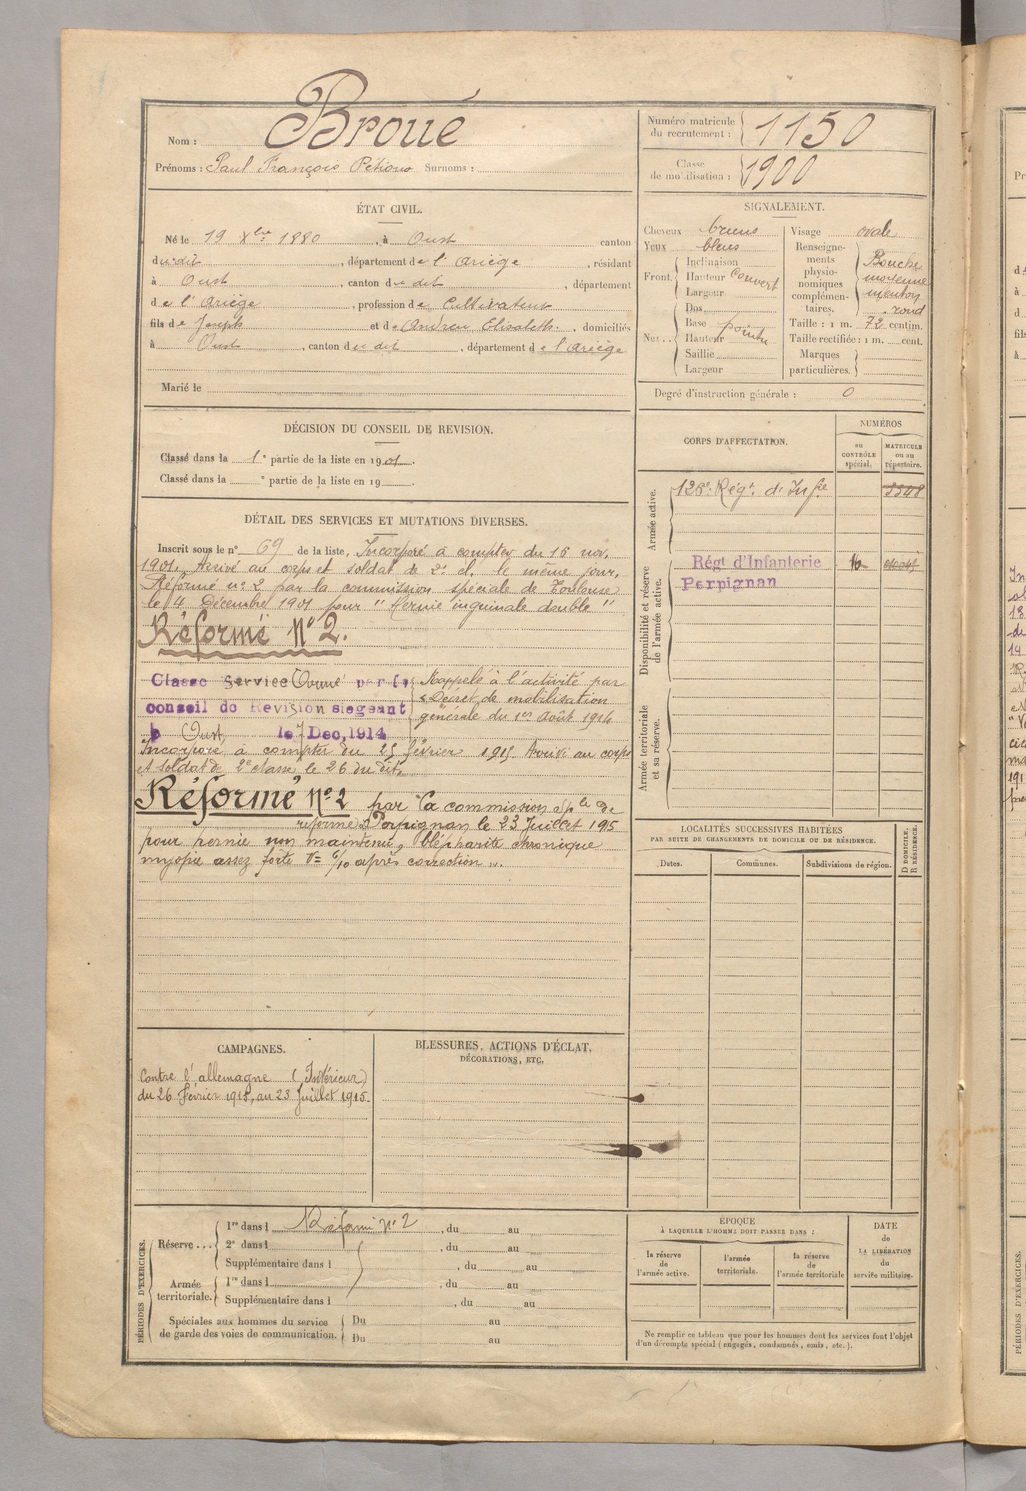 Nom : Broué
Prénoms : Paul François Surnoms :
Numéro matricule du recrutement : 1150
Classe de mobilisation : 1900
ÉTAT CIVIL.
Né le 19 Xbre 1880, à Oust canton
du dit, département de l'Ariège, résidant
à Oust, canton du dit, département
de l'Ariège, profession de Cultivateur
fils de Joseph et de Andreu Elisabeth, domiciliés
à Oust, canton du dit, département de l'Ariège
Marié le
SIGNALEMENT.
Cheveux bruns
Yeux bleus
Front. Inclinaison
Hauteur Couvert
Largeur
Nez.. Dos
Base pointu
Hauteur
Saillie
Largeur
Visage ovale
Renseignements physionomiques complémentaires. Bouche moyenne menton rond
Taille : 1 m. 72 centim.
Taille rectifiée : 1 m. cent.
Marques particulières.
Degré d'instruction générale : 0
DÉCISION DU CONSEIL DE REVISION.
Classé dans la 1e partie de la liste en 1901.
Classé dans la e partie de la liste en 19 .
CORPS D'AFFECTATION.
NUMÉROS
au CONTRÔLE spécial.
MATRICULE ou au répertoire.
Armée active.
126e Régt d'Infie
Disponibilité et réserve de l'armée active.
Régt d'Infanterie
Perpignan
16
Armée territoriale et sa réserve.
DÉTAIL DES SERVICES ET MUTATIONS DIVERSES.
Inscrit sous le n° 69 de la liste, Incorporé à compter du 16 nov.
1901. Arrivé au corps et soldat de 2e cl. le même jour.
Réformé n° 2 par la commission spéciale de Toulouse
le 4 Décembre 1901 pour "hernie inguinale double"
Réformé N° 2.
Classé Service Armé par le
conseil de Revision siegeant
à Oust, le 7 Dec, 1914
Rappelé à l'activité par
Décret de mobilisation
générale du 1er Août 1914
Incorporé à compter du 25 février 1915 Arrivé au corps
et soldat de 2e classe le 26 du dit.
Réformé N° 2 par la commission sple de
réforme de Perpignan le 23 Juillet 1915
pour hernie non maintenue, blépharite chronique
myopie assez forte V= 6/10 après correction
LOCALITÉS SUCCESSIVES HABITÉES
PAR SUITE DE CHANGEMENTS DE DOMICILE OU DE RÉSIDENCE.
Dates.
Communes.
Subdivisions de région.
D DOMICILE. R RÉSIDENCE.
CAMPAGNES.
Contre l'allemagne (Intérieur)
du 26 Février 1915, au 23 Juillet 1915.
BLESSURES, ACTIONS D'ÉCLAT,
DÉCORATIONS, ETC.
PÉRIODES D'EXERCICES.
Réserve ... 1re dans l Réformé N° 2, du au
2e dans l , du au
Supplémentaire dans l , du au
Armée territoriale. 1re dans l , du au
Supplémentaire dans l , du au
Spéciales aux hommes du service de garde des voies de communication. Du au
Du au
ÉPOQUE
À LAQUELLE L'HOMME DOIT PASSER DANS :
la réserve de l'armée active.
l'armée territoriale.
la réserve de l'armée territoriale
DATE de LA LIBÉRATION du service militaire.
Ne remplir ce tableau que pour les hommes dont les services font l'objet
d'un décompte spécial (engagés, condamnés, omis, etc.).
PÉRIODES D'EXERCICES.